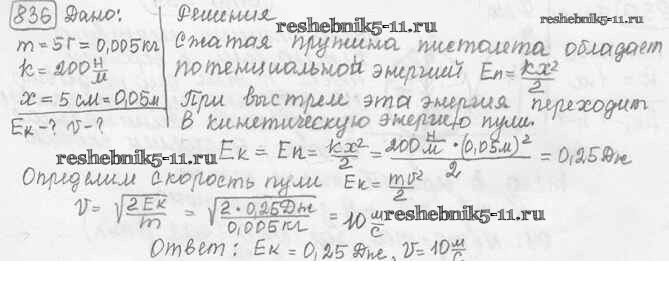 836 Дано: Решения
reshebnik5-11.ru
reshebnik5-11.ru
m = 5г = 0,005кг Сжатая пружина пистолета обладает
k = 200 н/м потенциальной энергией Eп = kx²/2
x = 5 см = 0,05м При выстреле эта энергия переходит
Eк - ? v - ? в кинетическую энергию пули.
reshebnik5-11.ru
Eк = Eп = kx²/2 = 200 н/м • (0,05м)²/2 = 0,25Дж
Определим скорость пули Eк = mv²/2
v = √(2Eк/m) = √(2•0,25Дж/0,005кг) = 10 м/с
reshebnik5-11.ru
Ответ: Eк = 0,25 Дж, v = 10 м/с